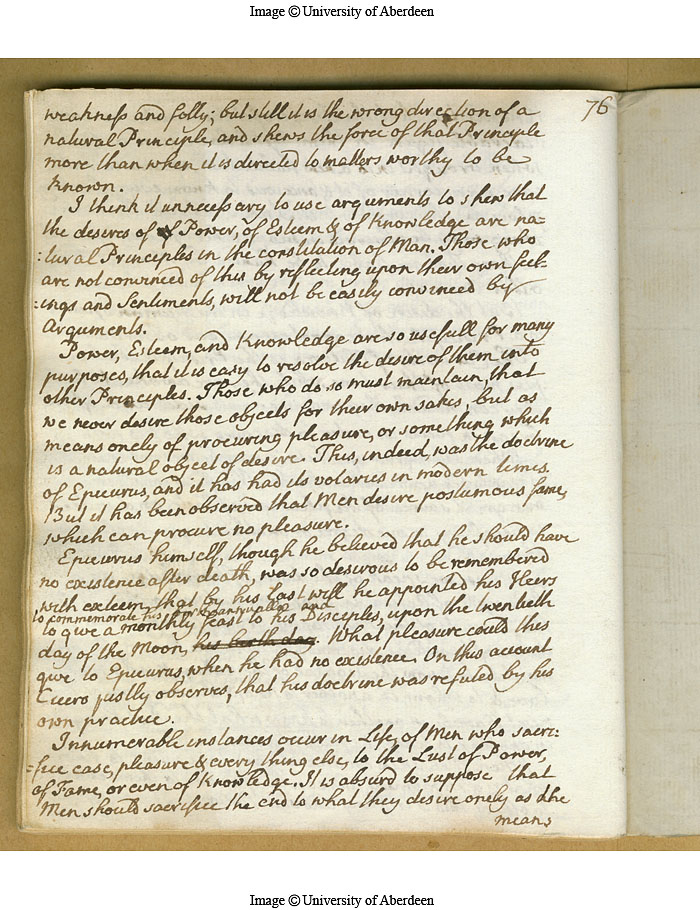 Image © University of Aberdeen
76
weakness and folly; but still it is the wrong direction of a
natural Principle, and shews the force of that Principle
more than when it is directed to matters worthy to be
known.
I think it unnecessary to use arguments to shew that
the desires of of Power, of Esteem & of Knowledge are na-
:tural Principles in the constitution of Man. Those who
are not convinced of this by reflecting upon their own feel-
:ings and Sentiments, will not be easily convinced by
Arguments.
Power, Esteem, and Knowledge are so usefull for many
purposes, that it is easy to resolve the desire of them into
other Principles. Those who do so must maintain, that
we never desire those objects for their own sakes, but as
means onely of procuring pleasure, or something which
is a natural object of desire. This, indeed, was the doctrine
of Epicurus, and it has had its votaries in modern times.
But it has been observed that Men desire postumous fame,
which can procure no pleasure.
Epicurus himself, though he believed that he should have
no existence after death, was so desirous to be remembered
with esteem, that by his last will he appointed his Heirs
to commemorate his birth annually and
to give a monthly feast to his Disciples, upon the twentieth
day of the Moon, his birth day. What pleasure could this
give to Epicurus, when he had no existence. On this account
Cicero justly observes, that his doctrine was refuted by his
own practice.
Innumerable instances occur in Life, of Men who sacri-
:fice ease, pleasure & every thing else, to the Lust of Power,
of Fame, or even of Knowledge. It is absurd to suppose that
Men should sacrifice the end to what they desire onely as the
means
Image © University of Aberdeen